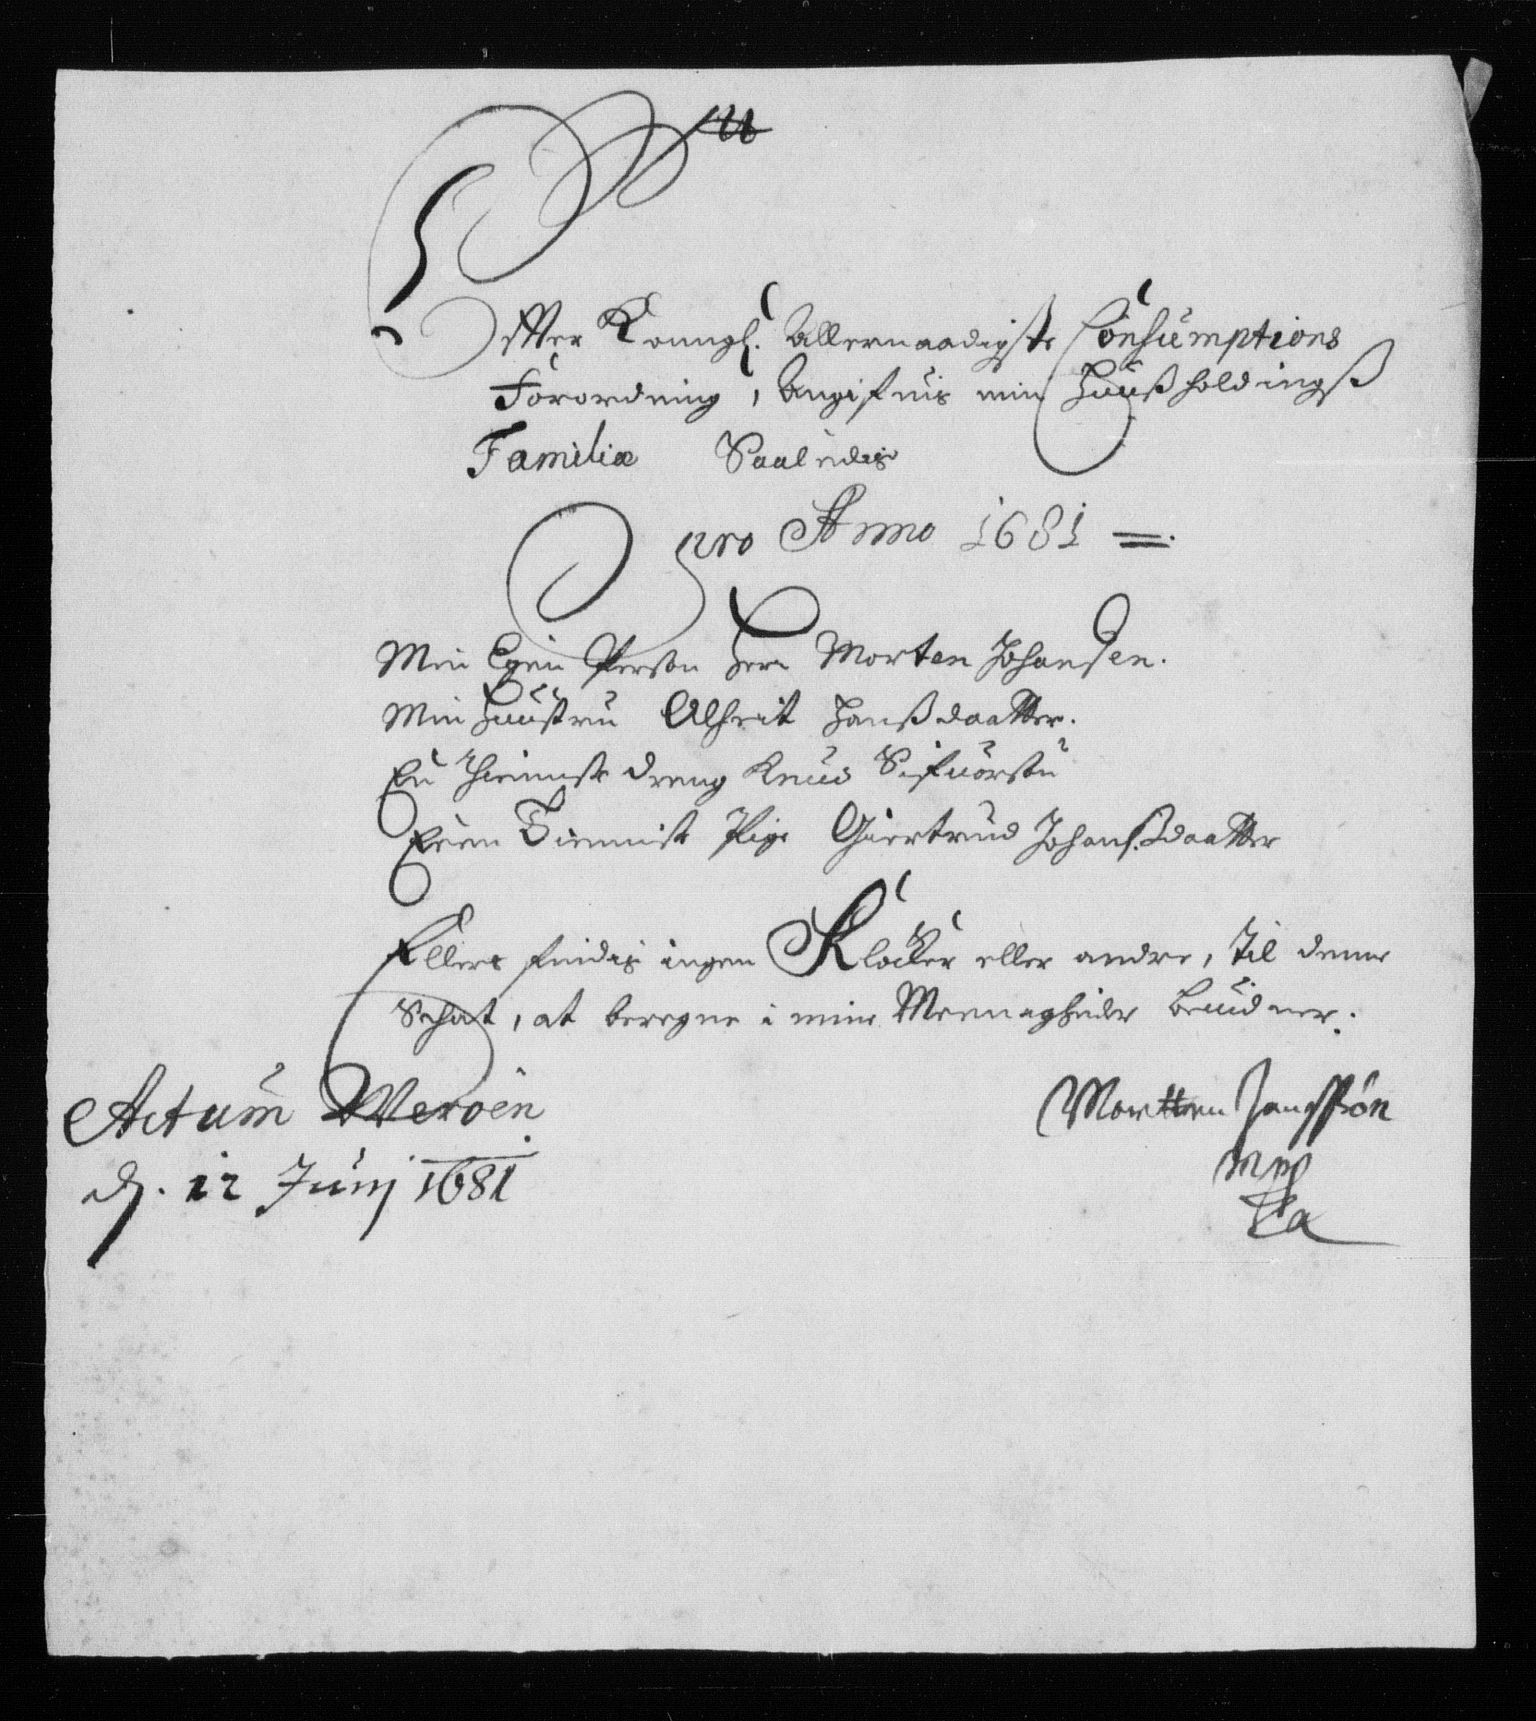 Effter Konngl. Allernaadigste Consumptions
Forordning, Angifuis min Huußholdingß
Familiæ Saaledis
pro Anno 1681
Min Egen Person Herr Morten Johansen.
Min Huustru Alheit Hanßdaatter.
En thienniste dreng Knud Sifuorsen
Eenn Tienniste Pige Giertrud Johansßdaatter
Ellers findis ingen Klocker eller andre, til denne
Schat, at beregne i mine Meenigheder beuidner.
Actum Werøen
d. 12 Junj 1681
Mortten Jansøn
mpp